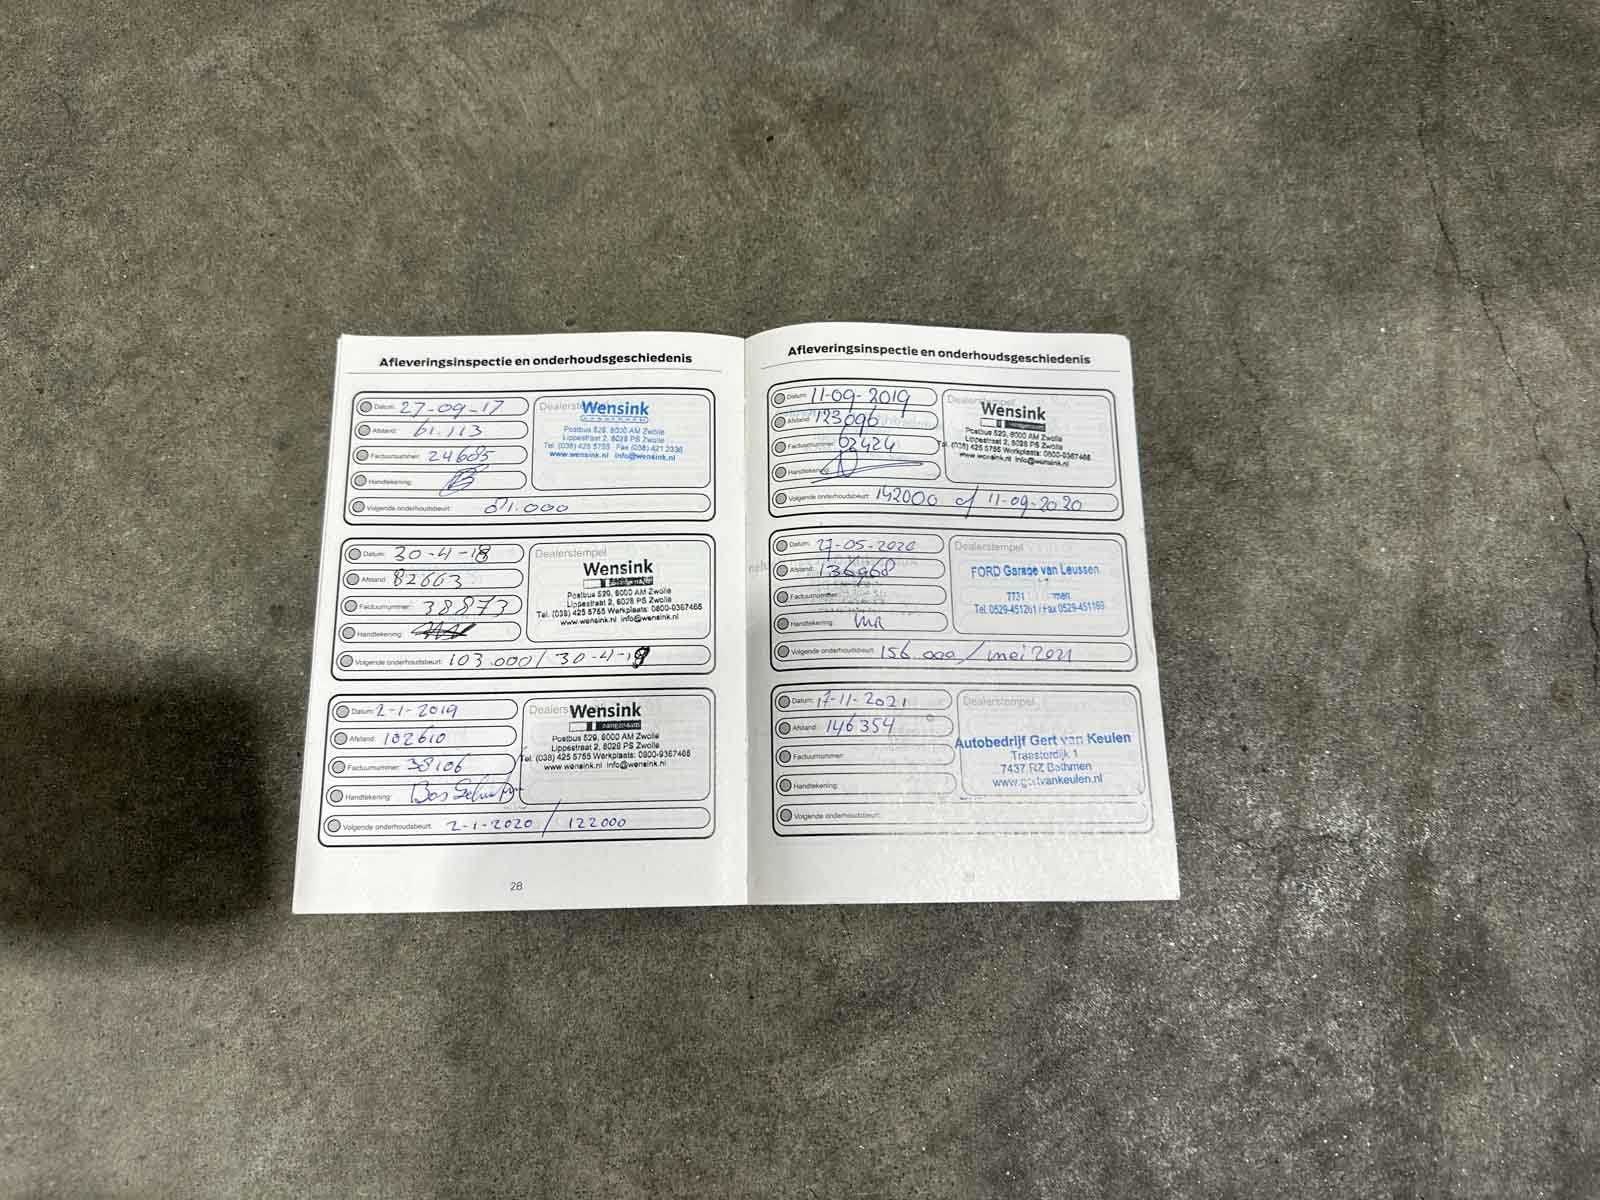 Afleveringsinspectie en onderhoudsgeschiedenis
Datum: 27-09-17
Afstand: 61.113
Factuurnummer: 24685
Handtekening:
Volgende onderhoudsbeurt: 81.000
Dealerstempel
Wensink
Postbus 529, 8000 AM Zwolle
Lippestraat 2, 8028 PS Zwolle
Tel. (038) 425 5755 Fax (038) 421 2336
www.wensink.nl info@wensink.nl
Datum: 30-4-18
Afstand: 82663
Factuurnummer: 38873
Handtekening:
Volgende onderhoudsbeurt: 103.000 / 30-4-19
Dealerstempel
Wensink
Postbus 529, 8000 AM Zwolle
Lippestraat 2, 8028 PS Zwolle
Tel. (038) 425 5755 Werkplaats: 0800-9367465
www.wensink.nl info@wensink.nl
Datum: 2-1-2019
Afstand: 102610
Factuurnummer: 38106
Handtekening:
Volgende onderhoudsbeurt: 2-1-2020 / 122000
Wensink
Postbus 529, 8000 AM Zwolle
Lippestraat 2, 8028 PS Zwolle
Tel. (038) 425 5755 Werkplaats: 0800-9367465
www.wensink.nl info@wensink.nl
28
Afleveringsinspectie en onderhoudsgeschiedenis
Datum: 11-09-2019
Afstand: 123096
Factuurnummer: 02424
Handtekening:
Volgende onderhoudsbeurt: 142000 of 11-09-2020
Dealerstempel
Wensink
Postbus 529, 8000 AM Zwolle
Lippestraat 2, 8028 PS Zwolle
Tel. (038) 425 5755 Werkplaats: 0800-9367465
www.wensink.nl info@wensink.nl
Datum: 27-05-2020
Afstand: 136968
Factuurnummer:
Handtekening: MR
Volgende onderhoudsbeurt: 156.000 / mei 2021
Dealerstempel
FORD Garage van Leussen
7731
Tel. 0529-451261 / Fax 0529-451169
Datum: 17-11-2021
Afstand: 146354
Factuurnummer:
Handtekening:
Volgende onderhoudsbeurt:
Dealerstempel
Autobedrijf Gert van Keulen
1
7437 RZ Bathmen
www.gertvankeulen.nl